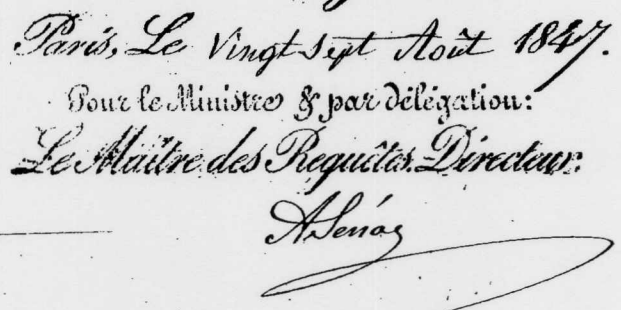 Paris, Le Vingt Sept Août 1847.
Pour le Ministre & par délégation:
Le Maître des Requêtes. Directeur.
ASenac